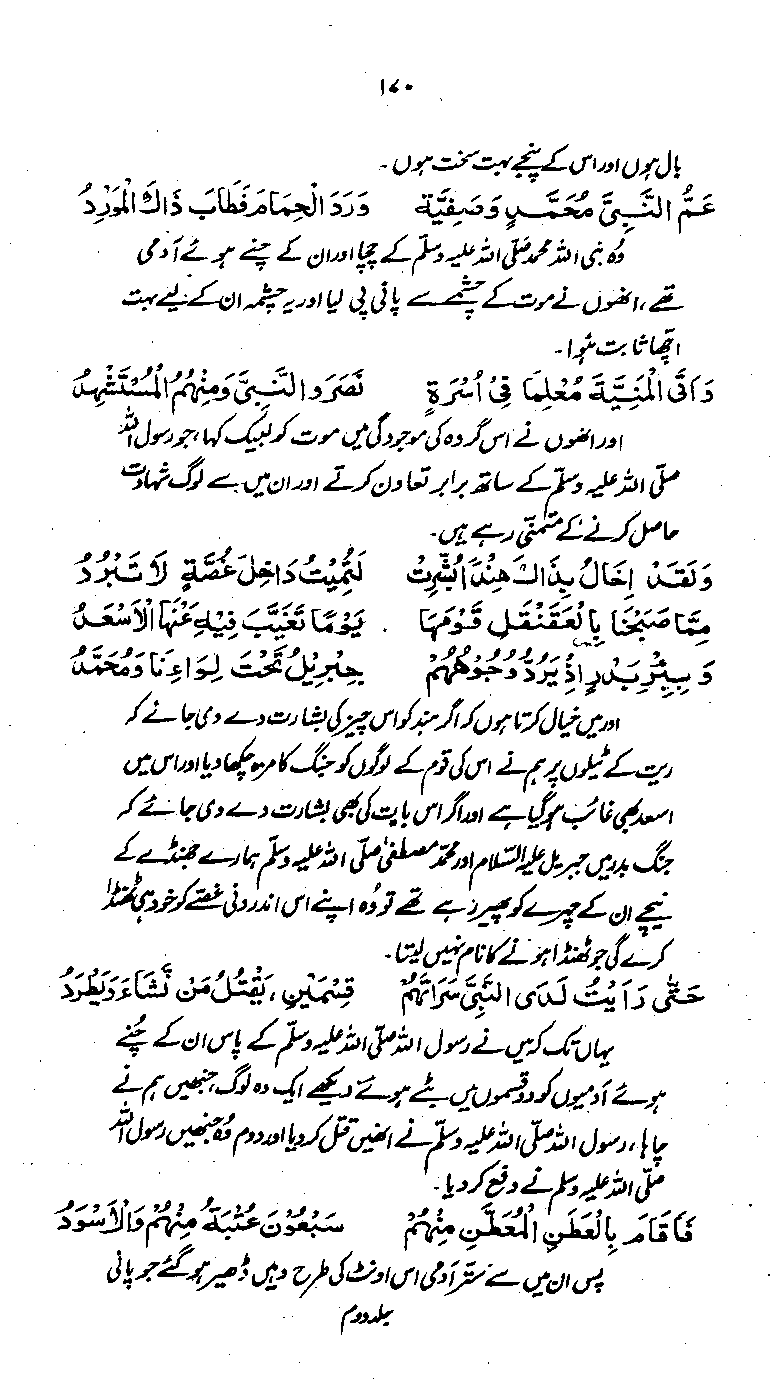 ۱۷۰
بال ہوں اور اس کے پنجے بہت سخت ہوں۔
عَمُّ النَّبِيِّ مُحَمَّدٍ وَصَفِيَّهٗ وَرَدَ الْحِمَامَ فَطَابَ ذَاكَ الْمَوْرِدُ
وُہ نبی اللہ محمد صلّی اللہ علیہ وسلّم کے چچا اور ان کے چنے ہوئے آدمی
تھے، انھوں نے موت کے چشمے سے پانی پی لیا اور یہ چشمہ ان کے لیے بہت
اچھا ثابت ہُوا۔
وَافَى الْمَنِيَّةَ مُعْلِمًا فِيْ اُسْرَةٍ نَصَرُوا النَّبِيَّ وَمِنْهُمُ الْمُسْتَشْهِدُ
اور انھوں نے اس گروہ کی موجودگی میں موت کو لبیک کہا، جو رسول اللہ
صلّی اللہ علیہ وسلّم کے ساتھ برابر تعاون کرتے اور ان میں سے لوگ شہادت
حاصل کرنے کے متمنّی رہے ہیں۔
وَلَقَدْ اِخَالُ بِذَاكَ هِنْدَ اُبْشِرَتْ لَتُمِيْتُ دَاخِلَ غُصَّةٍ لَا تَبْرُدُ
مِمَّا صَبَحْنَا بِالْعَقَنْقَلِ قَوْمَهَا يَوْمًا تَغَيَّبَ فِيْهِ عَنْهَا الْاَسْعَدُ
وَبِبِئْرِ بَدْرٍ اِذْ يَرُدُّ وُجُوْهَهُمْ جِبْرِيْلُ تَحْتَ لِوَاءِنَا وَمُحَمَّدُ
اور میں خیال کرتا ہوں کہ اگر ہند کو اس چیز کی بشارت دے دی جائے کہ
ریت کے ٹیلوں پر ہم نے اس کی قوم کے لوگوں کو جنگ کا مزہ چکھا دیا اور اس میں
اسعد بھی غائب ہو گیا ہے اور اگر اس بات کی بھی بشارت دے دی جائے کہ
جنگ بدر میں جبریل علیہ السّلام اور محمّد مصطفیٰ صلّی اللہ علیہ وسلّم ہمارے جھنڈے کے
نیچے ان کے چہرے کو پھیر رہے تھے تو وُہ اپنے اس اندرونی غصّے کو خود ہی ٹھنڈا
کرے گی جو ٹھنڈا ہونے کا نام نہیں لیتا۔
حَتّٰى رَاَيْتُ لَدَى النَّبِيِّ سَرَاتَهُمْ قِسْمَيْنِ، يَقْتُلُ مَنْ نَّشَاءُ وَيَطْرُدُ
یہاں تک کہ میں نے رسول اللہ صلّی اللہ علیہ وسلّم کے پاس ان کے چُنے
ہوئے آدمیوں کو دو قسموں میں بٹے ہوئے دیکھے ایک وہ لوگ، جنھیں ہم نے
چاہا، رسول اللہ صلّی اللہ علیہ وسلّم نے انھیں قتل کر دیا اور دوم وُہ جنھیں رسول اللہ
صلّی اللہ علیہ وسلّم نے دفع کر دیا۔
فَاَقَامَ بِالْعَطَنِ الْمُعَطَّنِ مِنْهُمْ سَبْعُوْنَ عُتْبَةُ مِنْهُمْ وَالْاَسْوَدُ
پس ان میں سے ستّر آدمی اس اونٹ کی طرح وہیں ڈھیر ہو گئے جو پانی
جلد دوم